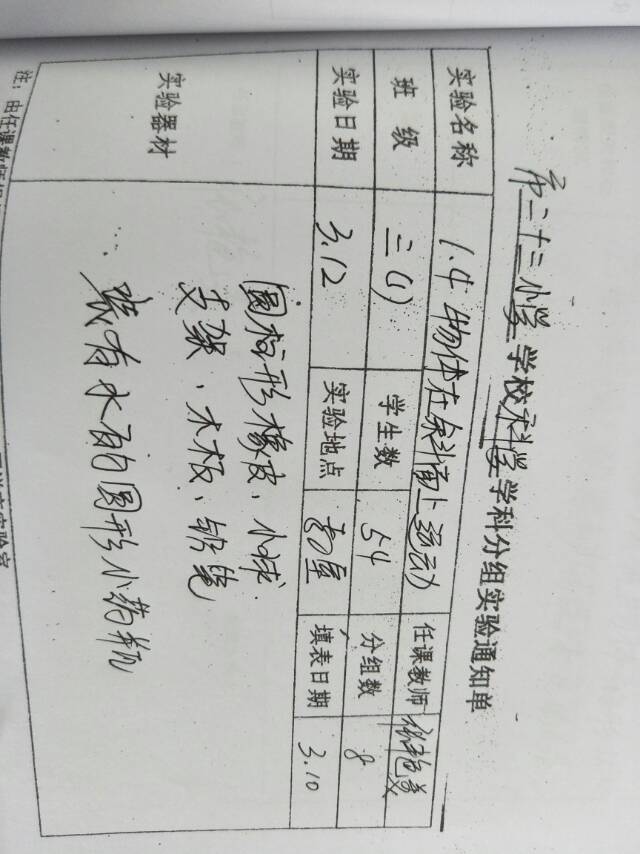 第二十三小学 学校 科学 学科分组实验通知单
实验名称 1.4 物体在斜面上运动 任课教师
班级 三(1) 学生数 54 分组数 8
实验日期 3.12 实验地点 填表日期 3.10
实验器材 圆柱形橡皮、小球
支架、木板、铅笔
装有水的圆形小药瓶
注：由任课教师